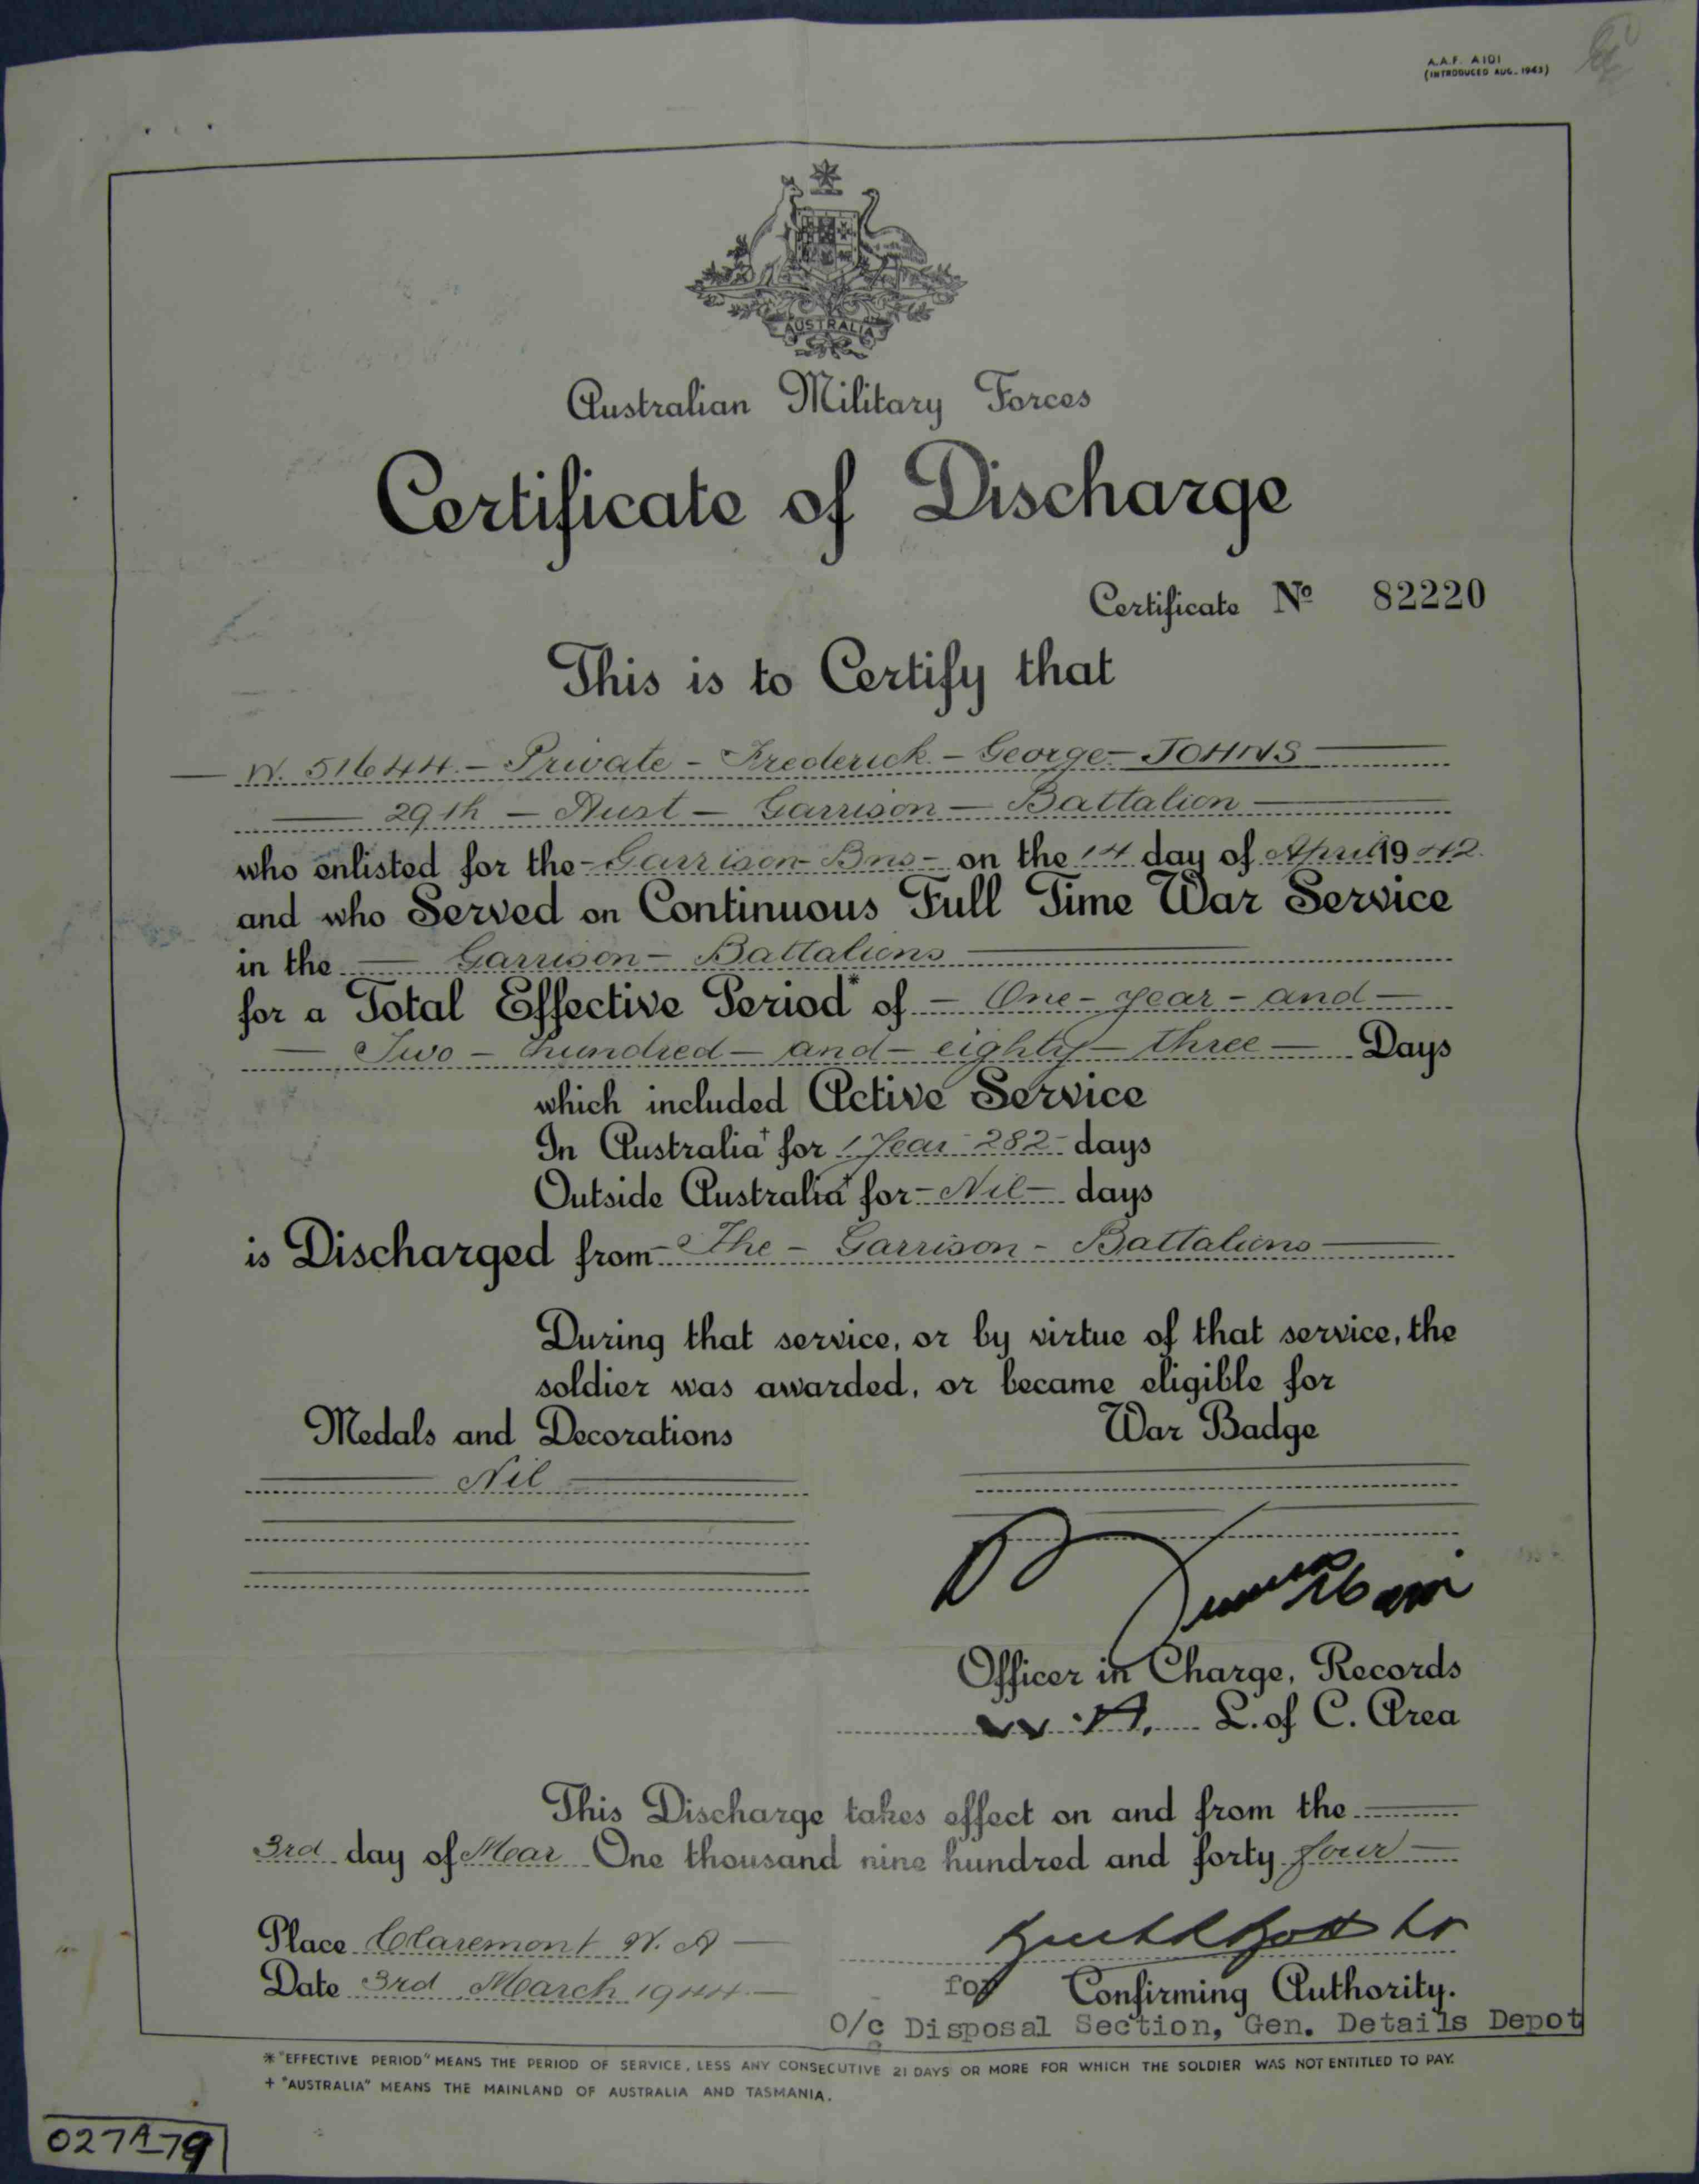 A.A.F. A101
(INTRODUCED AUG. 1943)
AUSTRALIA
Australian Military Forces
Certificate of Discharge
Certificate No 82220
This is to Certify that
W. 51644. - Private - Frederick - George - JOHNS
29th - Aust - Garrison - Battalion
who enlisted for the - Garrison - Bns - on the 14 day of April 1942.
and who Served on Continuous Full Time War Service
in the - Garrison - Battalions
for a Total Effective Period* of - One - year - and -
- Two - hundred - and - eighty - three - Days
which included Active Service
In Australia+ for 1 Year - 282 - days
Outside Australia+ for - Nil - days
is Discharged from - The - Garrison - Battalions
During that service, or by virtue of that service, the
soldier was awarded, or became eligible for
Medals and Decorations War Badge
Nil
Officer in Charge, Records
W.A. L. of C. Area
This Discharge takes effect on and from the
3rd day of Mar One thousand nine hundred and forty four
Place Claremont W.A
Date 3rd March 1944.
for Confirming Authority.
O/c Disposal Section, Gen. Details Depot
* "EFFECTIVE PERIOD" MEANS THE PERIOD OF SERVICE, LESS ANY CONSECUTIVE 21 DAYS OR MORE FOR WHICH THE SOLDIER WAS NOT ENTITLED TO PAY.
+ "AUSTRALIA" MEANS THE MAINLAND OF AUSTRALIA AND TASMANIA.
027A-79